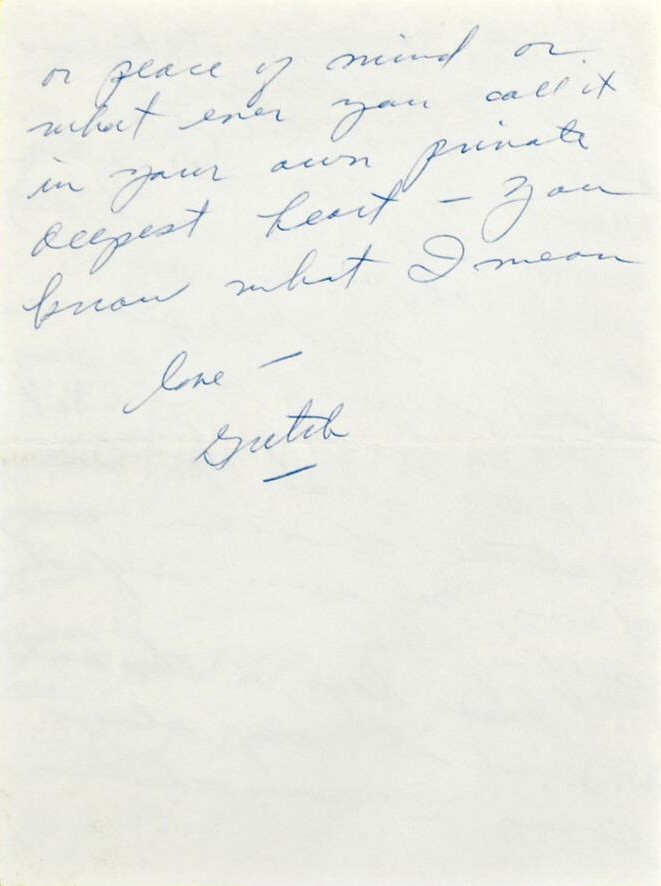 or peace of mind or
what ever you call it
in your own private
deepest heart – You
know what I mean
love –